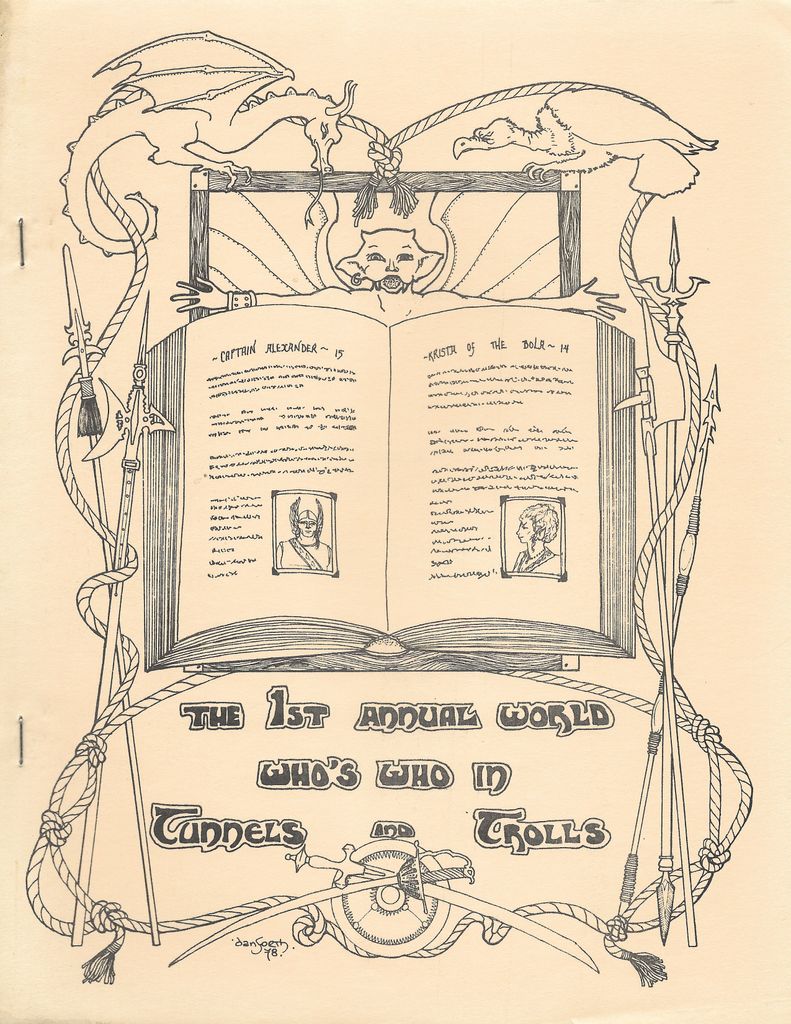 ~ CAPTAIN ALEXANDER ~ 15
~ KRISTA OF THE BOLA ~ 14
THE 1ST ANNUAL WORLD
WHO'S WHO IN
TUNNELS AND TROLLS
dangoeth
78.